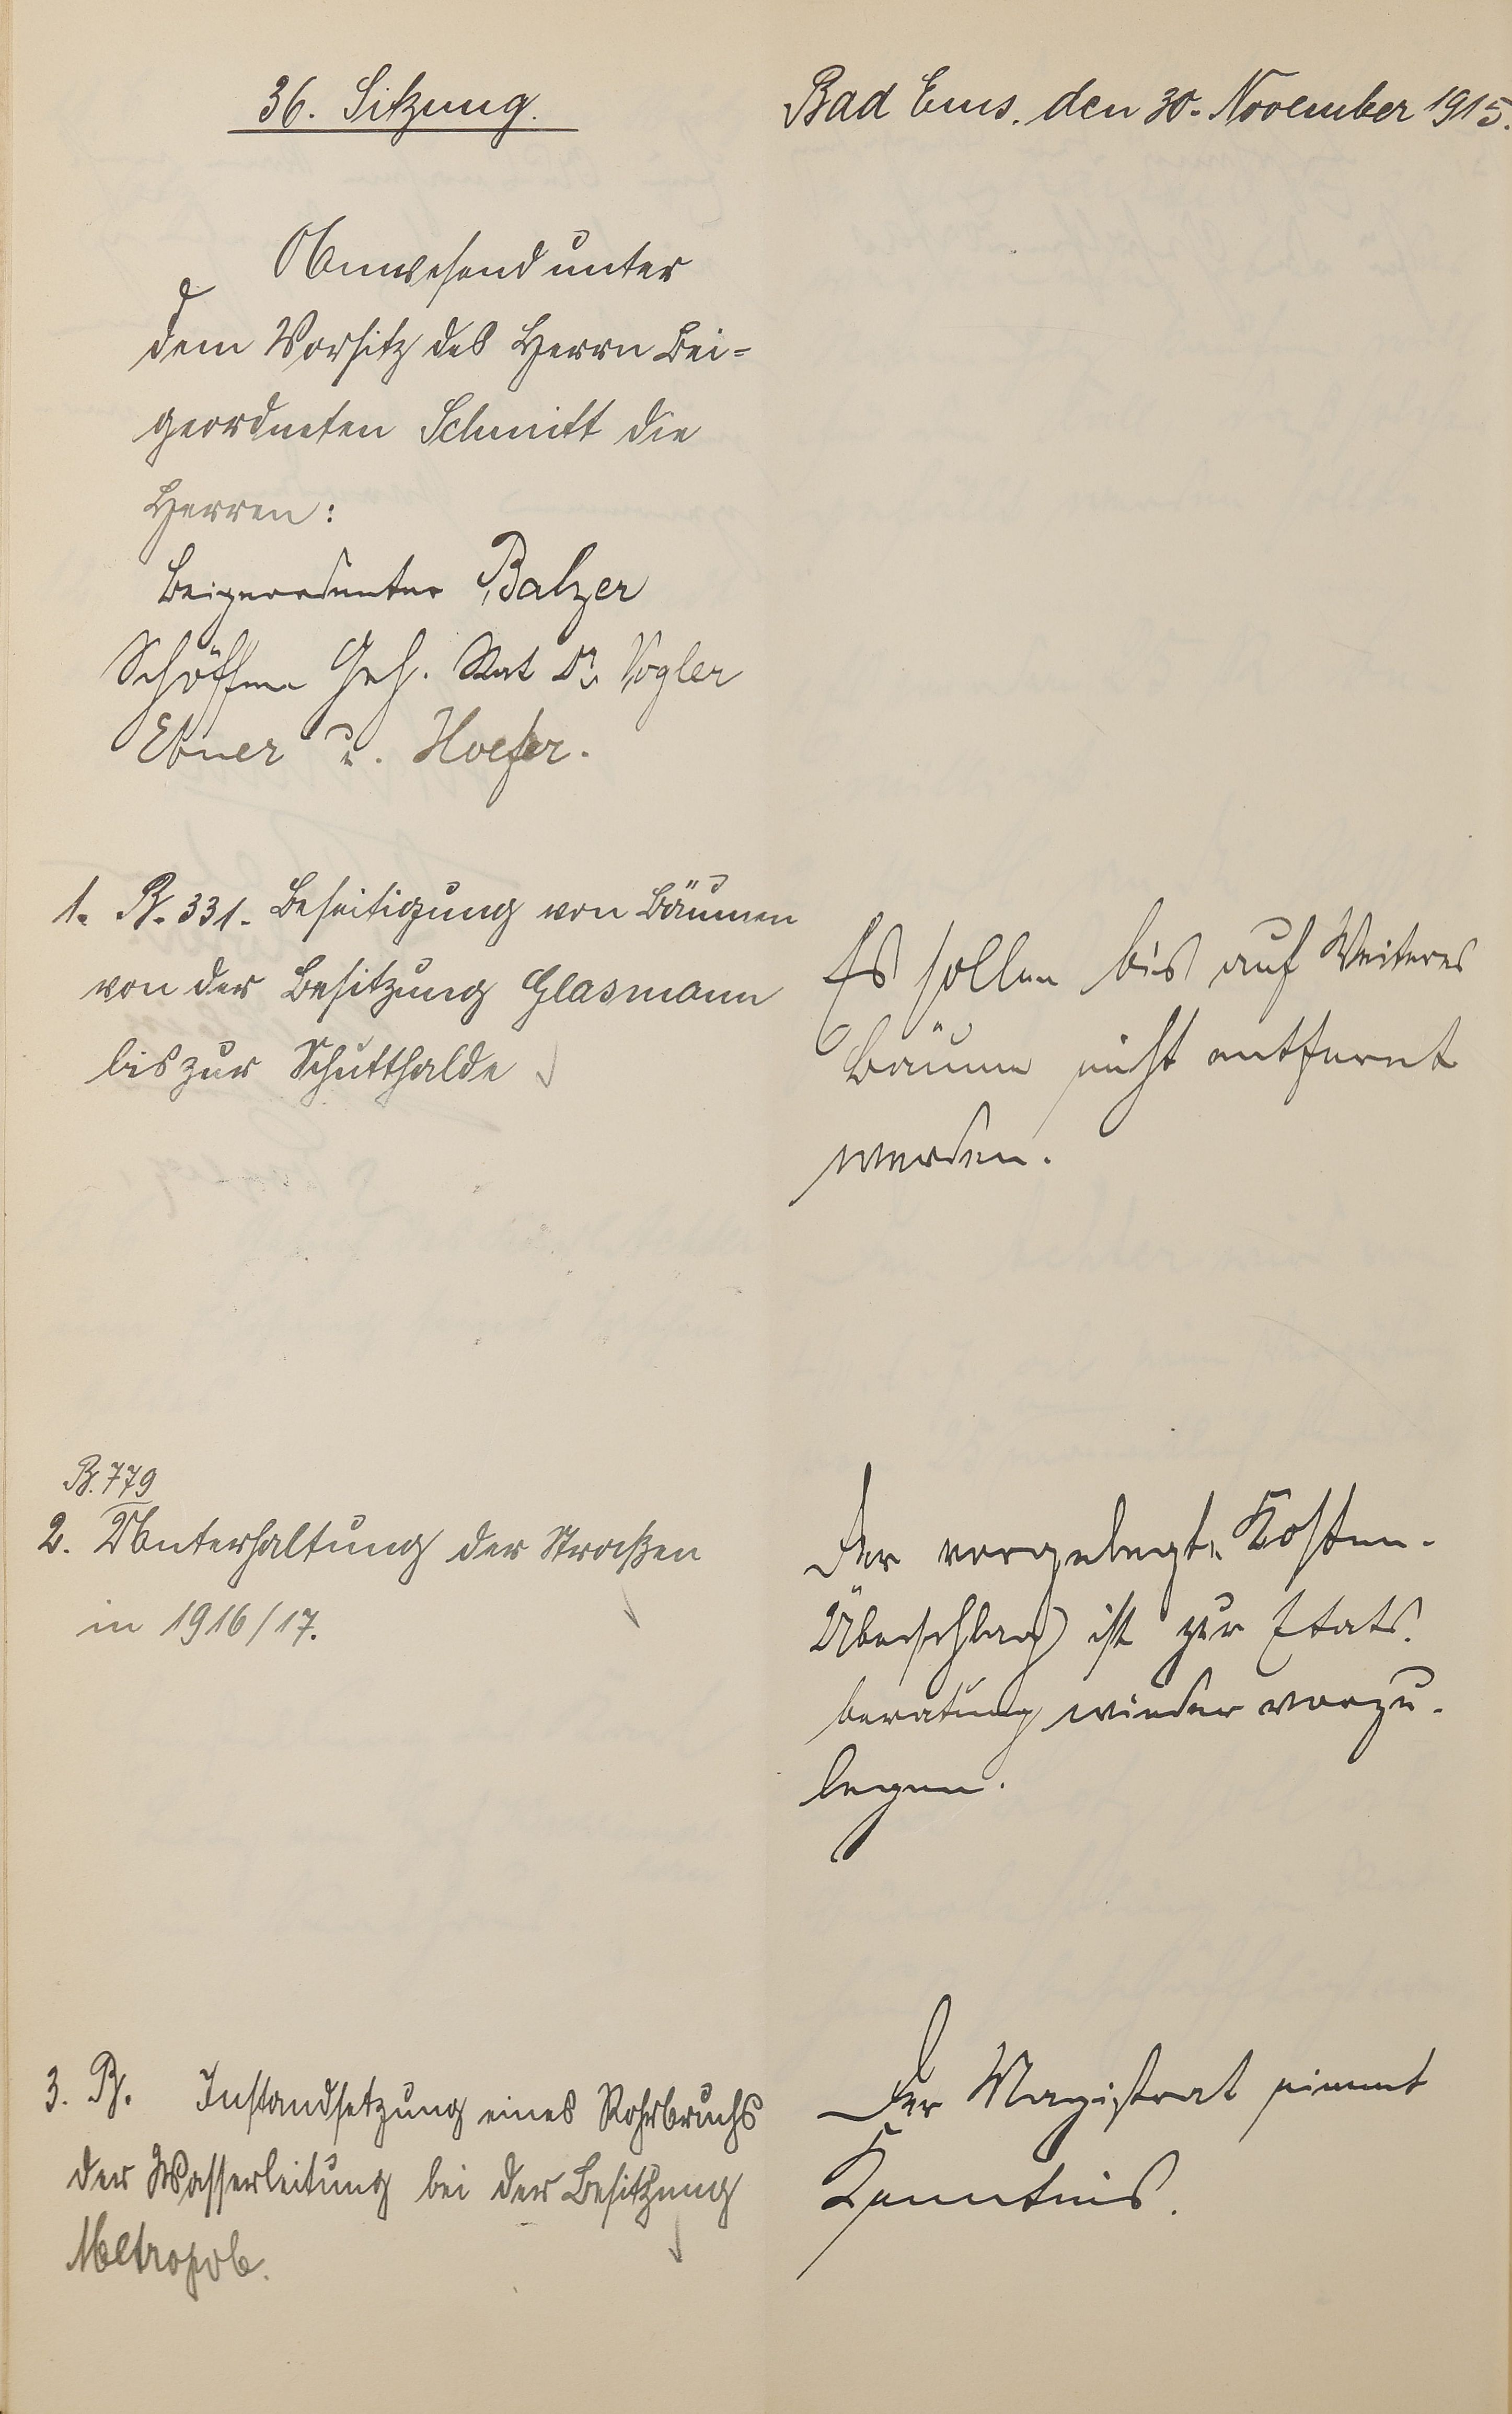 36. Sitzung.
Bad Ems, den 30. November 1915.
Anwesend unter
dem Vorsitz des Herrn Bei-
geordneten Schmitt die
Herren:
Beigeordneter Balzer
Schöffen Geh. Rat Dr. Vogler
Ebner u. Hoefer.
1. B. 331. Beseitigung von Bäumen
von der Besitzung Glasmann
bis zur Schutthalde
Es sollen bis auf Weiteres
Bäume nicht entfernt
werden.
B. 779
2. Unterhaltung der Straßen
in 1916/17.
Der vorgelegte Kosten-
Überschlag ist zur Etats-
beratung wieder vorzu-
legen.
3. B. Instandsetzung eines Rohrbruchs
der Wasserleitung bei der Besitzung
Metropole.
Der Magistrat nimmt
Kenntnis.